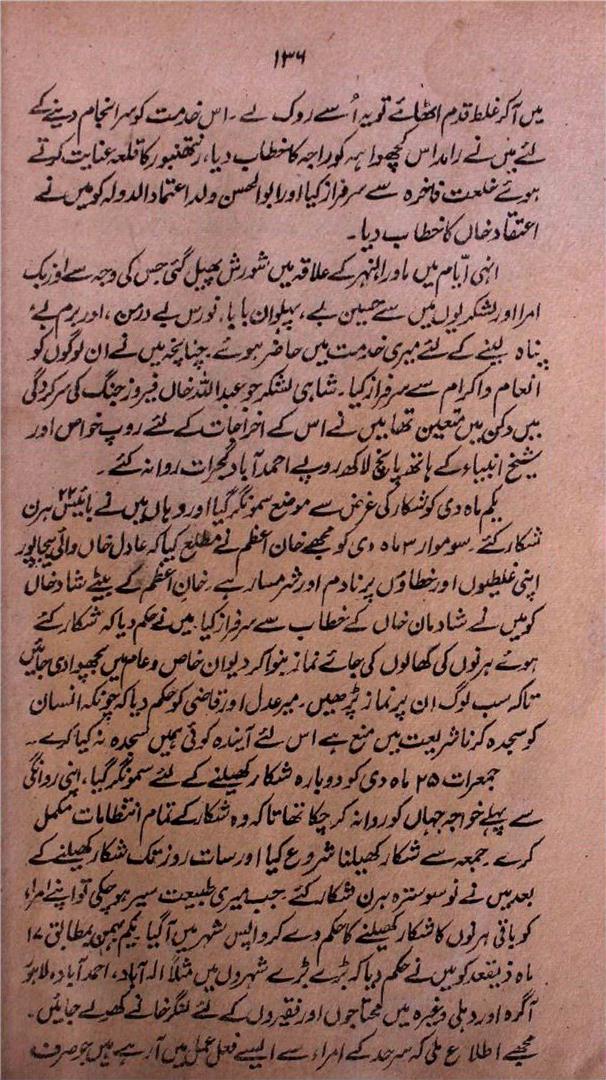 ۱۳۶
میں آکر غلط قدم اٹھائے تو یہ اُسے روک لے۔ اس خدمت کو سرانجام دینے کے
لئے میں نے رامداس کچھواہہ کو راجہ کا خطاب دیا، رنتھنبور کا قلعہ عنایت کرتے
ہوئے خلعت فاخرہ سے سرفراز کیا اور ابوالحسن ولد اعتماد الدولہ کو میں نے
اعتقاد خاں کا خطاب دیا۔
انہی ایّام میں ماوراءالنہر کے علاقہ میں شورش پھیل گئی جس کی وجہ سے اوزبک
امرا اور لشکریوں میں سے حسین بے، پہلوان بابا، نورس بے درمن، اور برم بے
پناہ لینے کے لئے میری خدمت میں حاضر ہوئے چنانچہ میں نے ان لوگوں کو
انعام و اکرام سے سرفراز کیا۔ شاہی لشکر جو عبداللہ خاں فیروز جنگ کی سرکردگی
میں دکن میں متعین تھا میں نے اس کے اخراجات کے لئے روپ خواص اور
شیخ انبیاء کے ہاتھ پانچ لاکھ روپے احمد آباد گجرات روانہ کئے۔
یکم ماہ دی کو شکار کی غرض سے موضع سمونگر گیا اور وہاں میں نے بائیس ۲۲ ہرن
شکار کئے۔ سوموار ۳ ماہ دی کو مجھے خان اعظم نے مطلع کیا کہ عادل خاں والئی بیجاپور
اپنی غلطیوں اور خطاؤں پر نادم اور شرمسار ہے۔ خان اعظم کے بیٹے شاد خاں
کو میں نے شادمان خاں کے خطاب سے سرفراز کیا۔ میں نے حکم دیا کہ شکار کئے
ہوئے ہرنوں کی کھالوں کی جائے نماز بنوا کر دیوان خاص و عام میں بچھوا دی جائیں
تاکہ سب لوگ ان پر نماز پڑھیں۔ میر عدل اور قاضی کو حکم دیا کہ چونکہ انسان
کو سجدہ کرنا شریعت میں منع ہے اس لئے آیندہ کوئی ہمیں سجدہ نہ کیا کرے۔
جمعرات ۲۵ ماہ دی کو دوبارہ شکار کھیلنے کے لئے سمونگر گیا، اپنی روانگی
سے پہلے خواجہ جہاں کو روانہ کر چکا تھا تاکہ وہ شکار کے تمام انتظامات مکمل
کرے۔ جمعہ سے شکار کھیلنا شروع کیا اور سات روز تک شکار کھیلنے کے
بعد میں نے نو سو سترہ ہرن شکار کئے۔ جب میری طبیعت سیر ہو چکی تو اپنے امراء
کو باقی ہرنوں کا شکار کھیلنے کا حکم دے کر واپس شہر میں آ گیا۔ یکم بہمن بمطابق ۱۷
ماہ ذیقعد کو میں نے حکم دیا کہ بڑے بڑے شہروں میں مثلاً الہ آباد، احمد آباد، لاہور
آگرہ اور دہلی وغیرہ میں محتاجوں اور فقیروں کے لئے لنگر خانے کھولے جائیں۔
مجھے اطلاع ملی کہ سرحد کے امراء سے ایسے فعل عمل میں آ رہے ہیں جو صرف